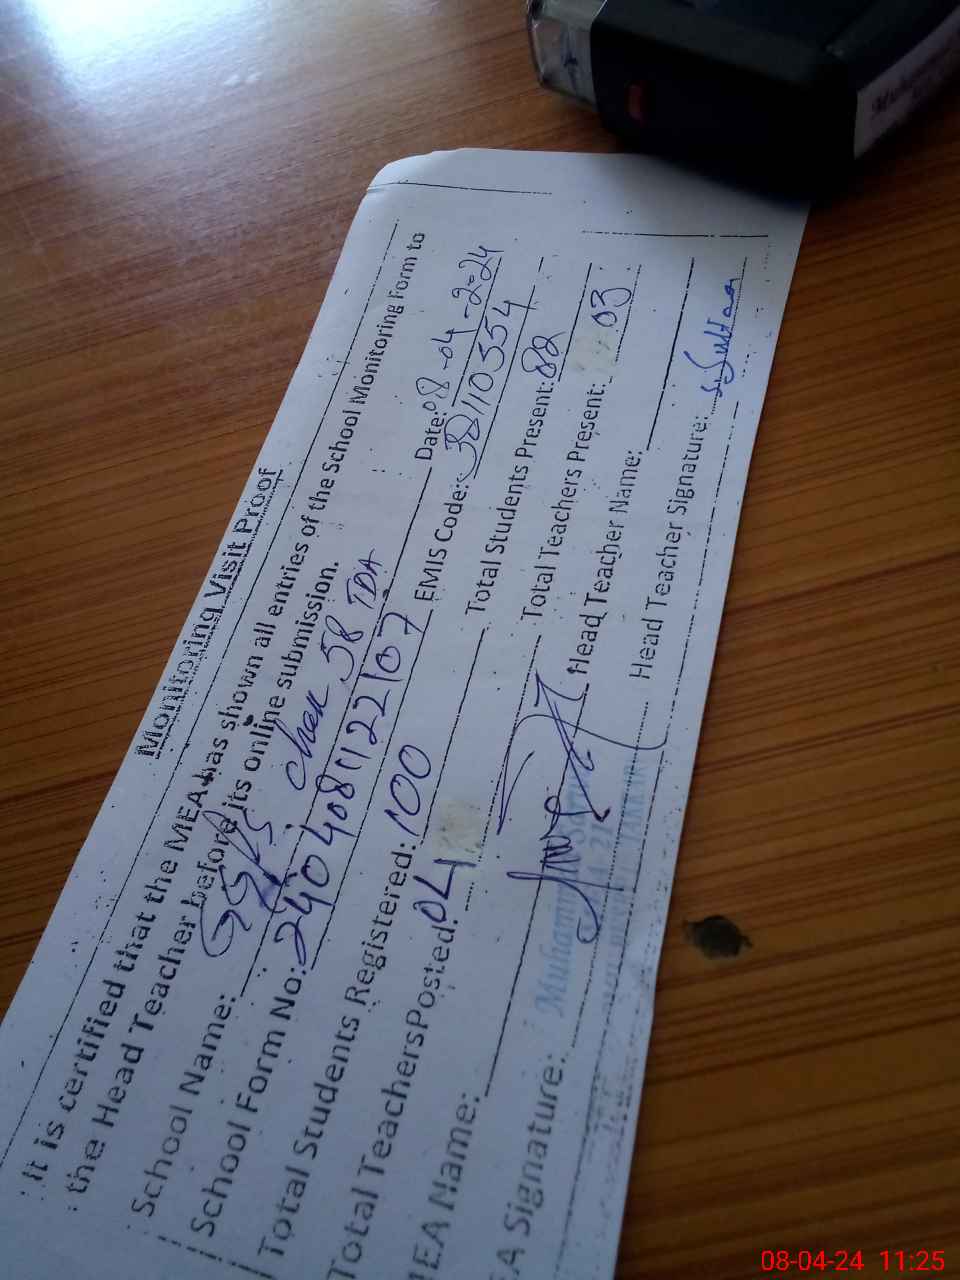 Monitoring Visit Proof
It is certified that the MEA has shown all entries of the School Monitoring Form to
the Head Teacher before its online submission.
School Name: GGPS Chak 58 TDA Date: 08-04-2024
School Form No: 2404081122107 EMIS Code: 38110354
Total Students Registered: 100 Total Students Present: 82
Total Teachers Posted: 04 Total Teachers Present: 03
MEA Name: Head Teacher Name:
A Signature: Head Teacher Signature:
08-04-24 11:25